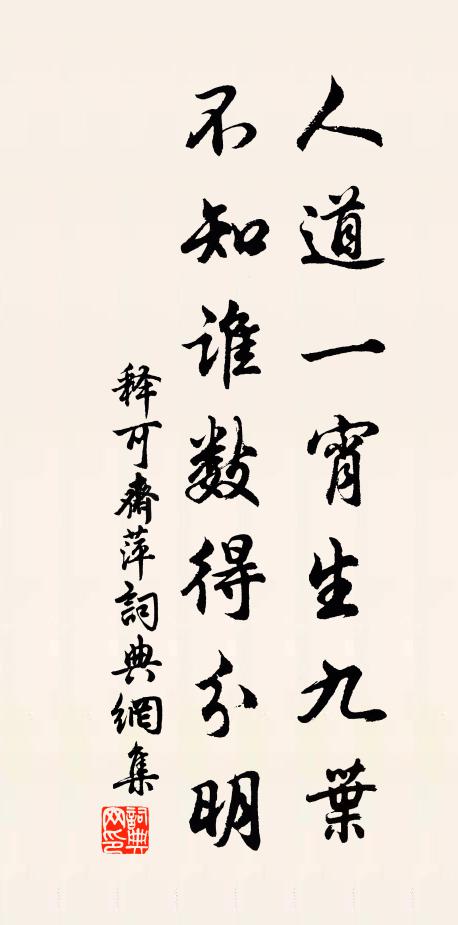 人道一宵生九葉
不知誰数得分明
释可齋萍詞典網集
詞典網印